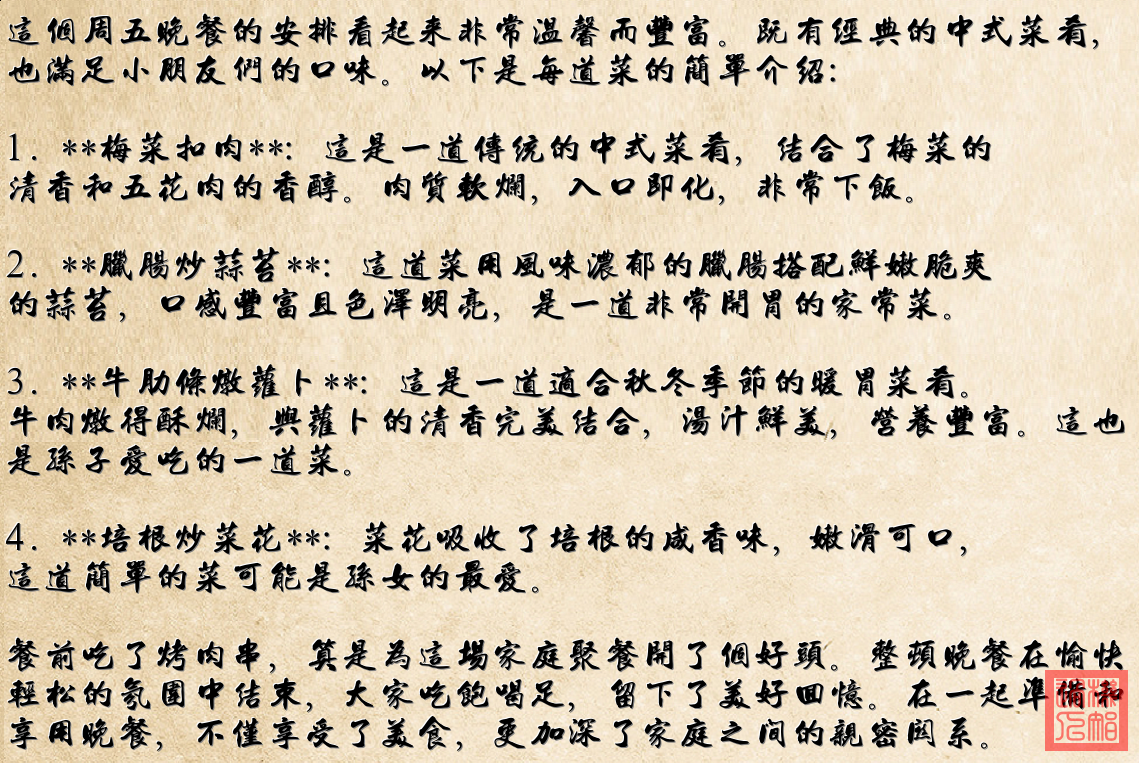 這個周五晚餐的安排看起来非常温馨而豐富。既有經典的中式菜肴，
也滿足小朋友們的口味。以下是每道菜的簡單介紹：
1. **梅菜扣肉**：這是一道傳統的中式菜肴，結合了梅菜的
清香和五花肉的香醇。肉質軟爛，入口即化，非常下飯。
2. **臘腸炒蒜苔**：這道菜用風味濃郁的臘腸搭配鮮嫩脆爽
的蒜苔，口感豐富且色澤明亮，是一道非常開胃的家常菜。
3. **牛肋條燉蘿卜**：這是一道適合秋冬季節的暖胃菜肴。
牛肉燉得酥爛，與蘿卜的清香完美結合，湯汁鮮美，營養豐富。這也
是孫子愛吃的一道菜。
4. **培根炒菜花**：菜花吸收了培根的咸香味，嫩滑可口，
這道簡單的菜可能是孫女的最愛。
餐前吃了烤肉串，算是為這場家庭聚餐開了個好頭。整頓晚餐在愉快
輕松的氛圍中結束，大家吃飽喝足，留下了美好回憶。在一起準備和
享用晚餐，不僅享受了美食，更加深了家庭之間的親密關系。